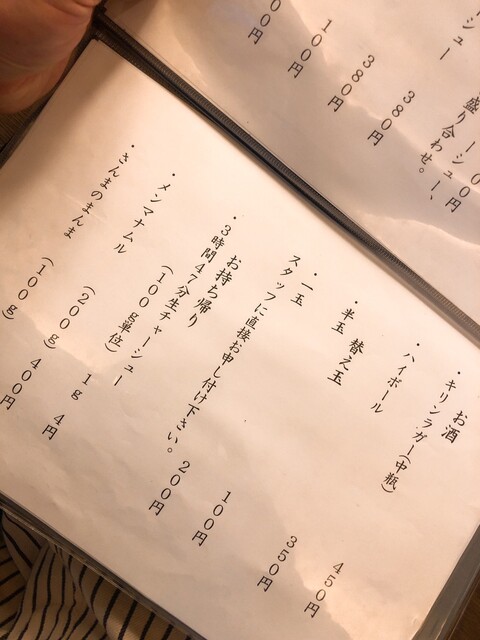 シュー
００円
ーシュー、
盛り合わせ。
３８０円
３８０円
１００円
００円
お酒
・キリンラガー(中瓶) ４５０円
・ハイボール ３５０円
替え玉
・半玉 １００円
・一玉 ２００円
スタッフに直接お申し付け下さい。
お持ち帰り
・３時間４７分生チャーシュー
(１００g単位) １g ４円
・メンマナムル (２００g) ４００円
・さんまのまんま (１００g)